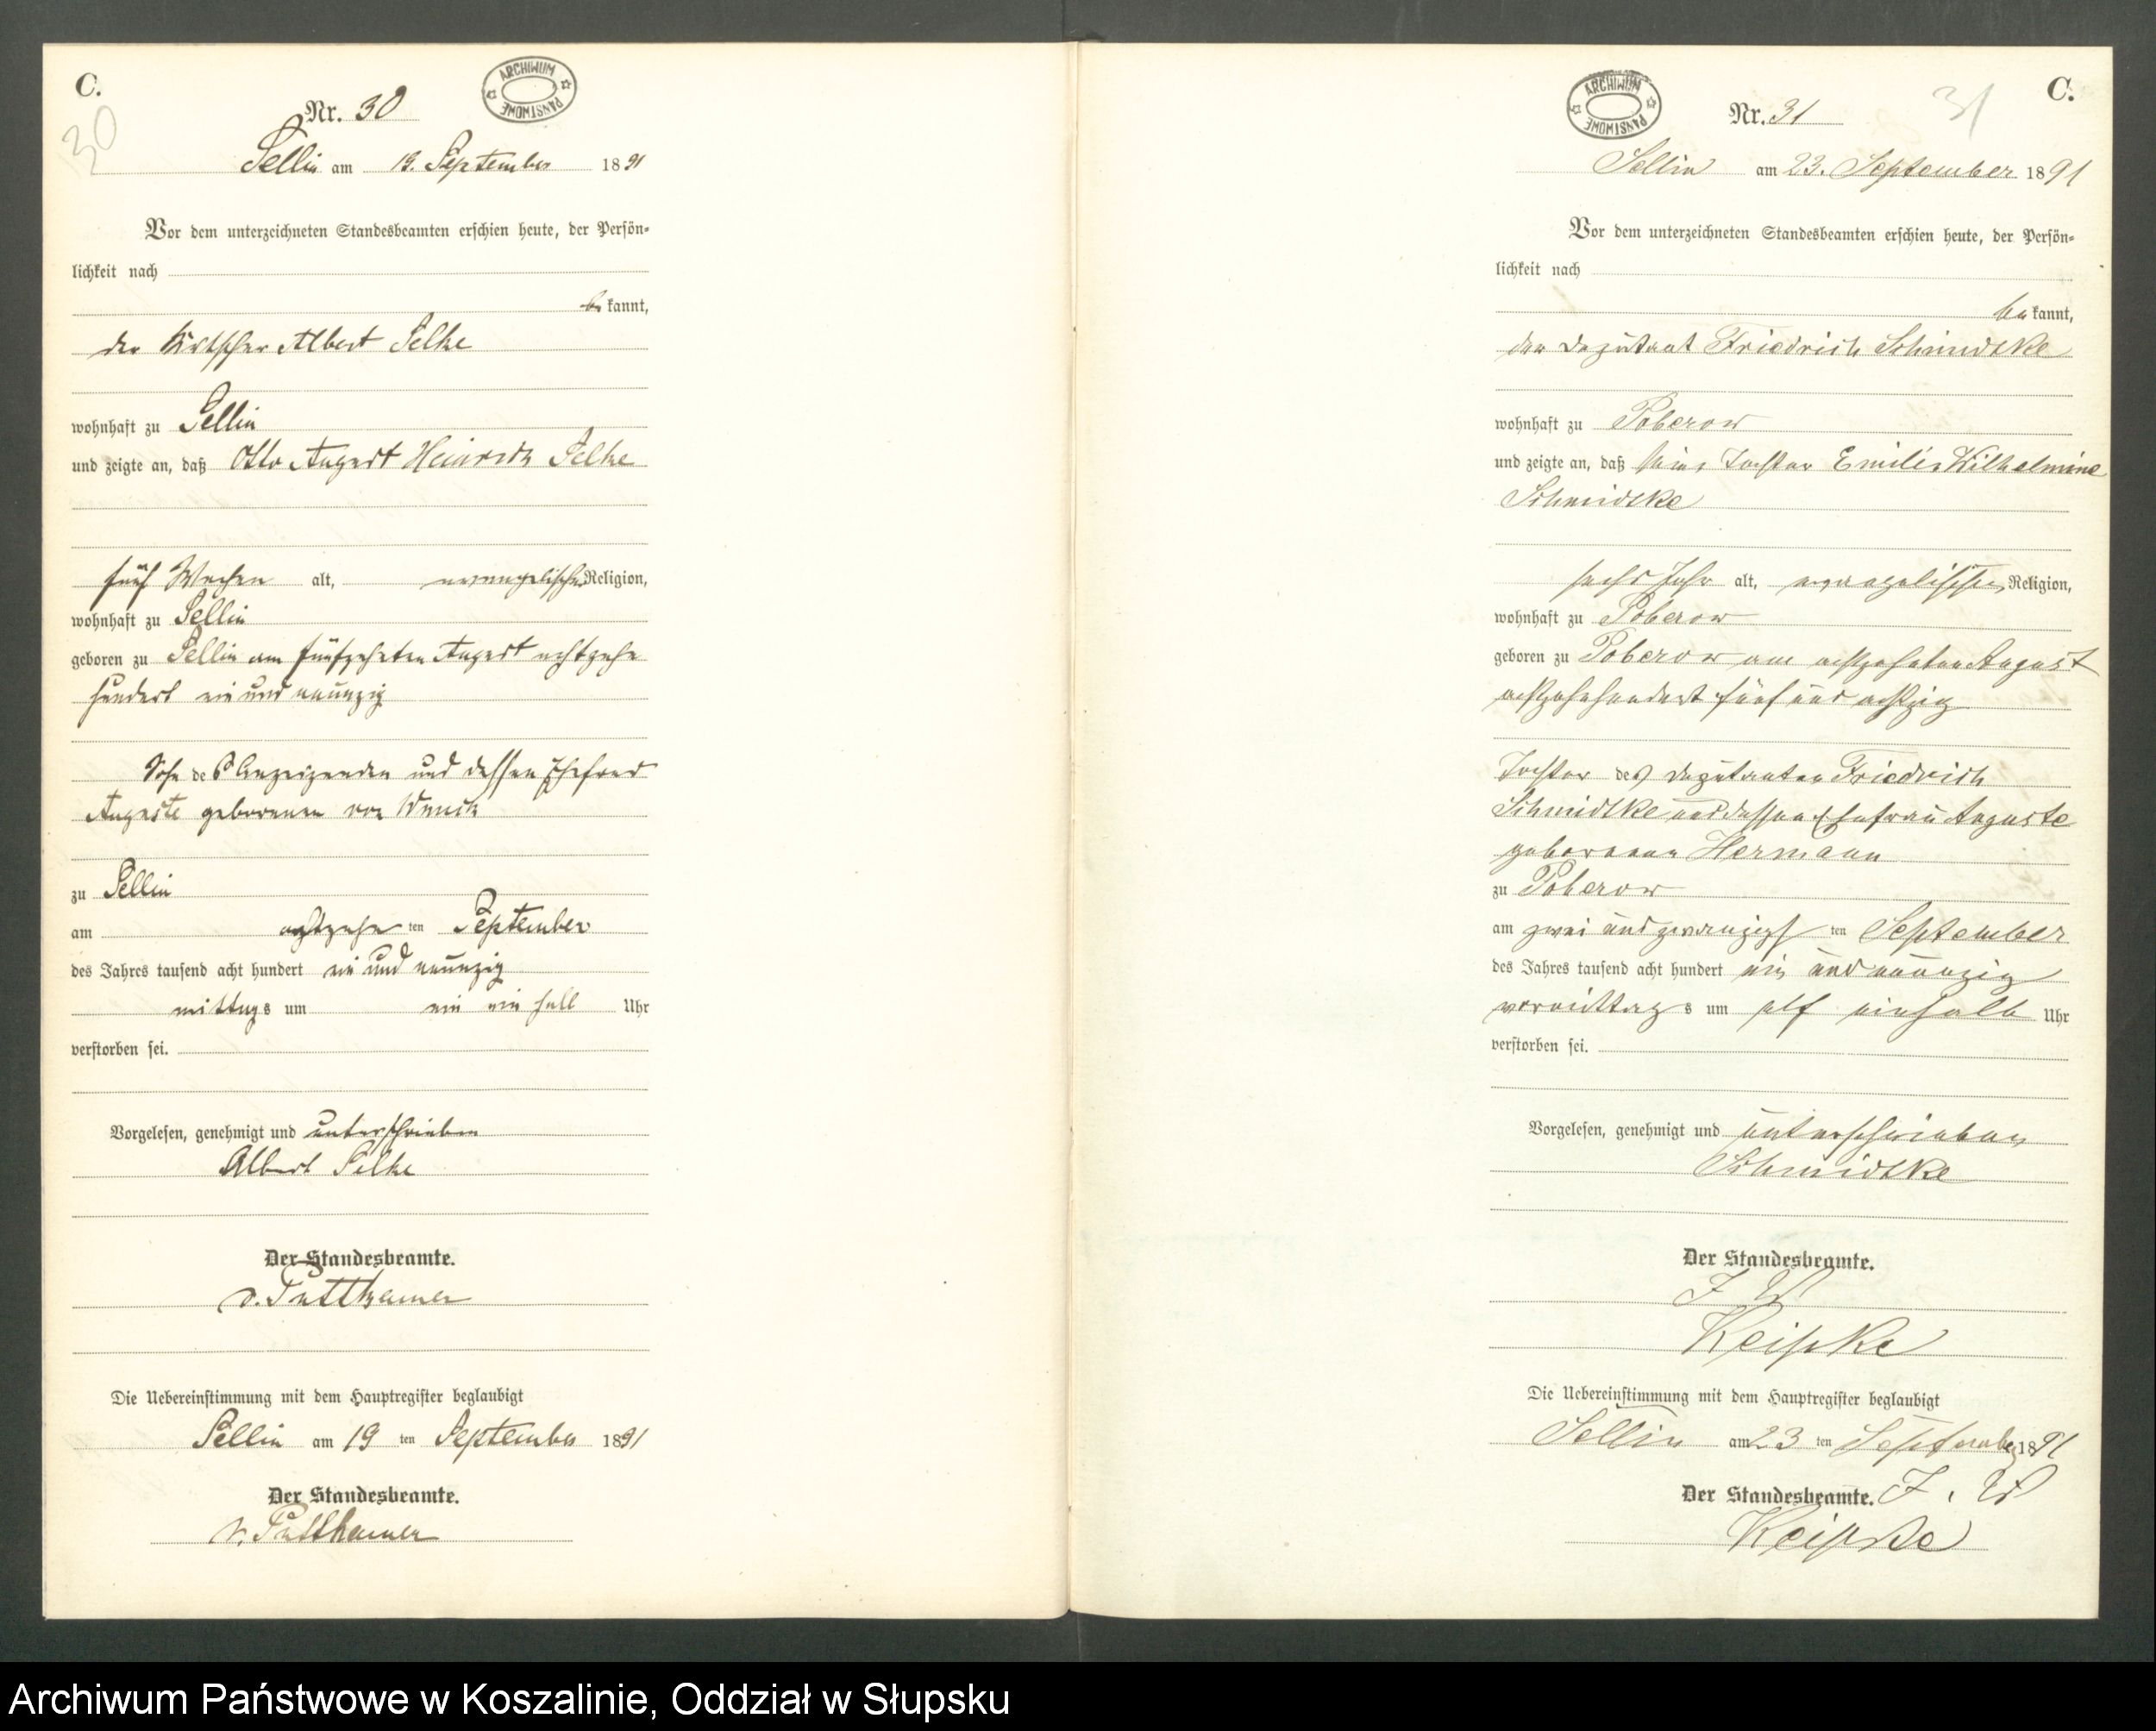 C.
30
Nr. 30
ARCHIWUM PAŃSTWOWE
Sellin am 19. September 1891
Vor dem unterzeichneten Standesbeamten erschien heute, der Persön-
lichkeit nach
be kannt,
der Kutscher Albert Selke
wohnhaft zu Sellin
und zeigte an, daß Otto August Heinrich Selke
fünf Wochen alt, evangelischer Religion,
wohnhaft zu Sellin
geboren zu Sellin am fünfzehnten August achtzehn
hundert ein und neunzig
Sohn des Anzeigenden und dessen Ehefrau
Auguste geborenen
zu Sellin
am achtzehn ten September
des Jahres tausend acht hundert ein und neunzig
mittags um ein ein halb Uhr
verstorben sei.
Vorgelesen, genehmigt und unterschrieben
Albert Selke
Der Standesbeamte.
v. Puttkamer
Die Uebereinstimmung mit dem Hauptregister beglaubigt
Sellin am 19 ten September 1891
Der Standesbeamte.
v. Puttkamer
C.
31
Nr. 31
ARCHIWUM PAŃSTWOWE
Sellin am 23. September 1891
Vor dem unterzeichneten Standesbeamten erschien heute, der Persön-
lichkeit nach
be kannt,
der Deputant Friedrich Schmidtke
wohnhaft zu Poberow
und zeigte an, daß seine Tochter Emilie Wilhelmine
Schmidtke
sechs Jahr alt, evangelischer Religion,
wohnhaft zu Poberow
geboren zu Poberow am achtzehnten August
achtzehnhundert fünf und achtzig
Tochter des Deputanten Friedrich
Schmidtke und dessen Ehefrau Auguste
geborenen Hermann
zu Poberow
am zwei und zwanzigst ten September
des Jahres tausend acht hundert ein und neunzig
vormittags um elf einhalb Uhr
verstorben sei.
Vorgelesen, genehmigt und unterschrieben
Schmidtke
Der Standesbeamte.
I V
Keipke
Die Uebereinstimmung mit dem Hauptregister beglaubigt
Sellin am 23 ten September 1891
Der Standesbeamte. I. V
Keipke
Archiwum Państwowe w Koszalinie, Oddział w Słupsku